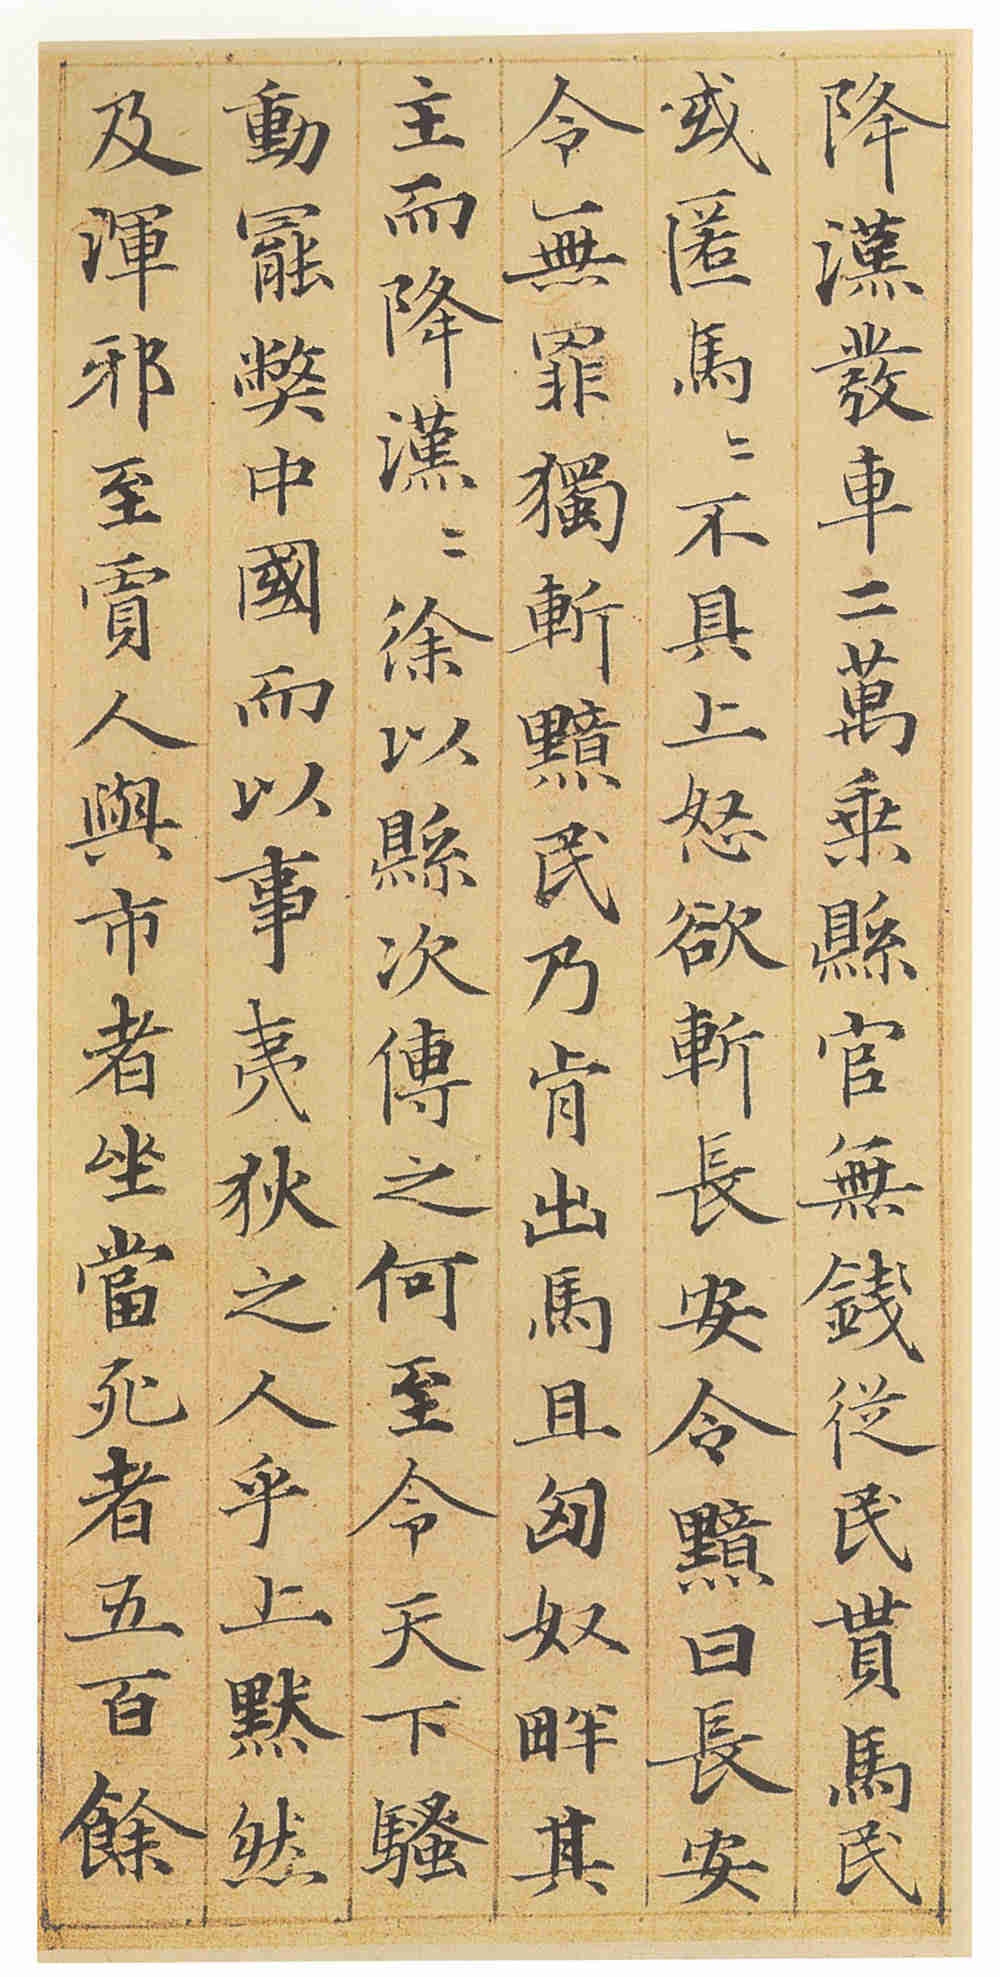 降漢發車二萬乘縣官無錢從民貰馬民
或匿馬〻不具上怒欲斬長安令黯曰長安
令無罪獨斬黯民乃肯出馬且匈奴畔其
主而降漢〻徐以縣次傳之何至令天下騷
動罷弊中國而以事夷狄之人乎上黙然
及渾邪至賈人與市者坐當死者五百餘